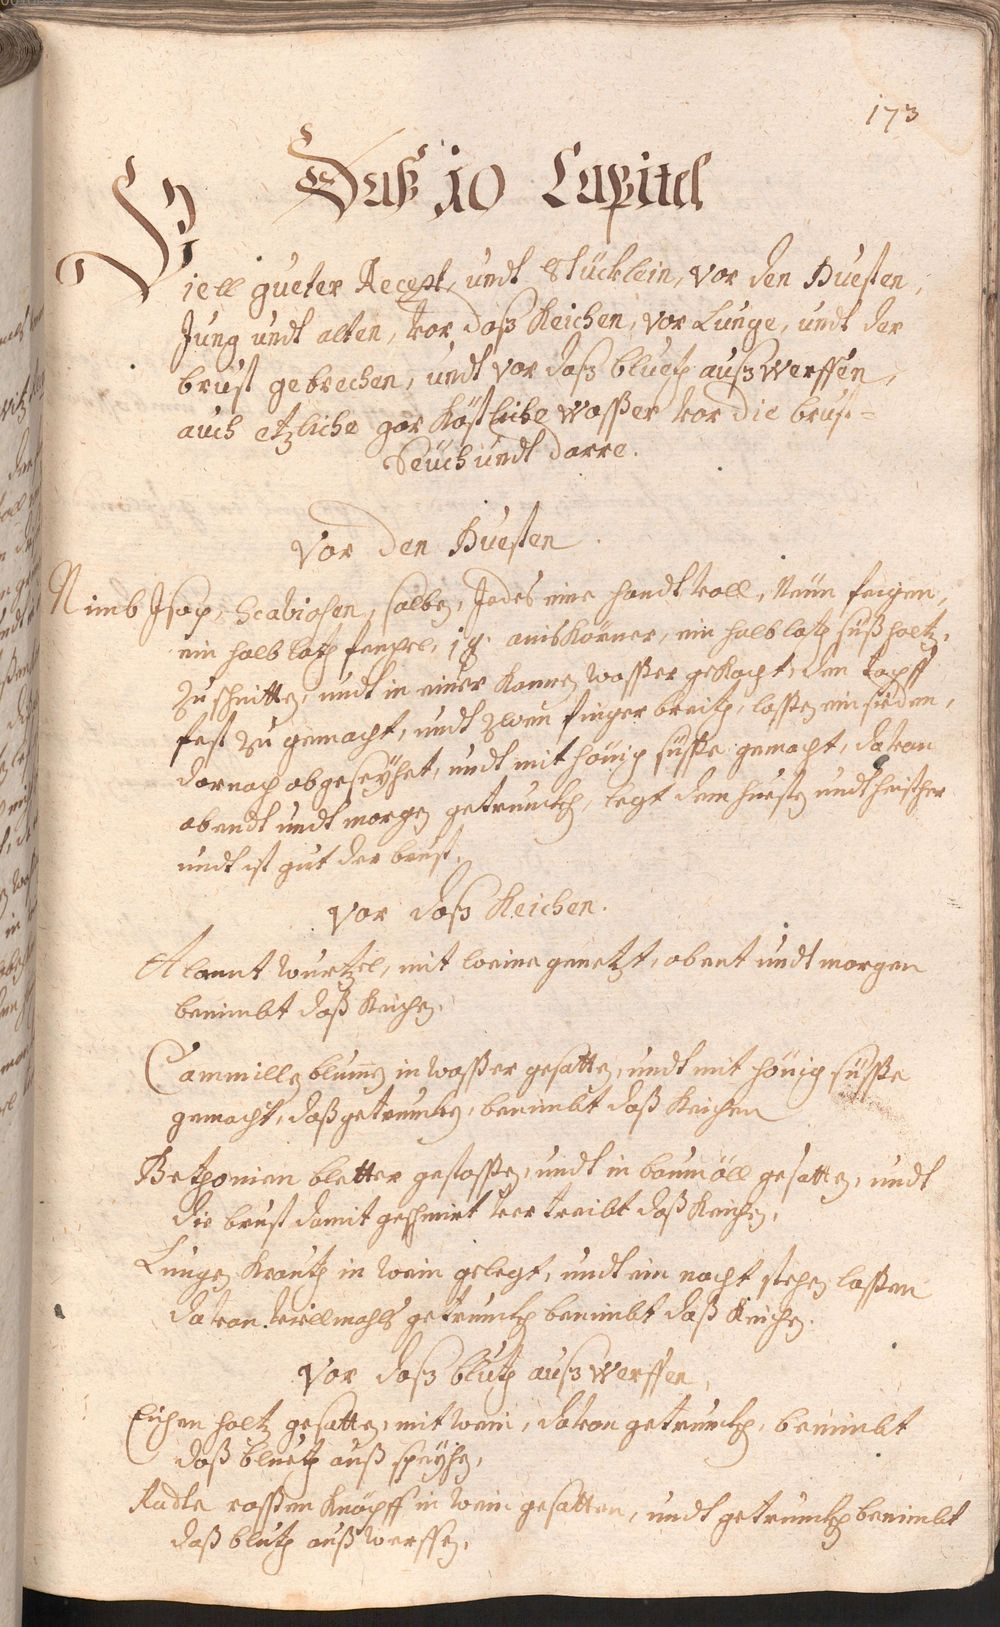 173
Daß 10 Capitel
Viell gueter Recept, undt Stücklein, vor den Huesten,
Jung undt alten, vor daß Keichen, vor Lunge, undt der
brust gebrechen, undt vor daß bluetz außwerffen,
auch etzliche gar köstliche waßer vor die brust=
Seuch undt darre.
Vor den Huesten
Nimb Isop, Scabiosen, salbey, Jedes eine handt voll, Neün feigen,
ein halb loth fenchel, 1 q. anis Körner, ein halb loth süß holtz,
Zu schnitten, undt in einer Kannen waßer gekocht, den topff
fest zu gemacht, undt zwen finger breith, laßen ein sieden,
darnach abgeseÿhet, undt mit hönig süße gemacht, davon
abendt undt morgen getrunckh, legt den huesten undt heischer
undt ist gut der brust.
Vor daß Keichen.
Alannt wurtzel, mit weine genetzt, abent undt morgen
benimbt daß Keichen.
Cammillen blumen in waßer gesotten, undt mit hönig süße
gemacht, daß getruncken, benimbt daß Keichen
Bethonien bletter gestoßen, undt in baumöll gesotten, undt
die brust damit geschmirt vertreibt daß Keichen.
Lungen Krauth in wein gelegt, undt ein nacht stehen laßen
davon viellmahls getrunckh benimbt daß Keichen.
Vor daß bluth außwerffen,
Eichen holtz gesotten, mit wein, davon getrunckh, benimbt
daß blueth auß speÿhen,
Rodte roßen Knöpff in wein gesotten, undt getrunckh benimbt
daß bluth auß werffen,